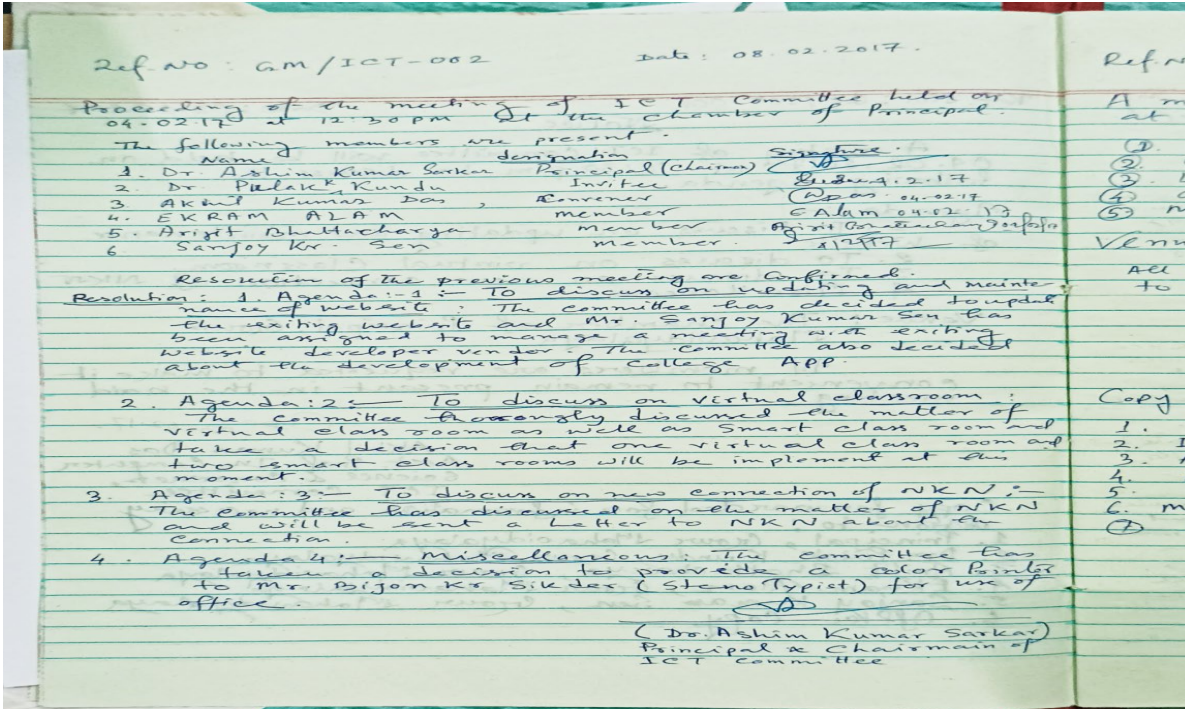 Ref. No : GM/ICT-002 Date : 08.02.2017.
Proceeding of the meeting of ICT Committee held on
04-02-17 at 12-30 pm at the chamber of Principal.
The following members are present.
Name designation Signature.
1. Dr. Ashim Kumar Sarkar Principal (Chairman)
2. Dr Pulak Kundu Invitee 4.2.17
3 Akhil Kumar Das , Convener Das 04-02-17
4. EKRAM ALAM member EAlam 04-02-17
5. Arijit Bhattacharya member Arijit Bhattacharya
6 Sanjoy Kr. Sen member.
Resolution of the previous meeting are Confirmed.
Resolution : 1. Agenda:-1 :- To discuss on updating and mainte-
nance of website. The committee has decided to updat
the exiting website and Mr. Sanjoy Kumar Sen has
been assigned to manage a meeting with exiting
website developer vendor. The committee also decided
about the development of College App.
2. Agenda:2:- To discuss on virtual classroom :
The committee thoroughly discussed the matter of
virtual class room as well as Smart class room and
take a decision that one virtual class room and
two smart class rooms will be implement at this
moment.
3. Agenda : 3:- To discuss on new connection of NKN :-
The committee has discussed on the matter of NKN
and will be sent a Letter to NKN about the
connection.
4. Agenda 4:- Miscellaneous : The committee has
taken a decision to provide a color Printer
to Mr. Bijon Kr Sikder (Steno Typist) for use of
office.
(Dr. Ashim Kumar Sarkar)
Principal & Chairman of
ICT committee
Ref. N
A m
at
①
②
③
④
⑤
Venu
All
to
Copy
1.
2.
3.
4.
5.
6. m
⑦